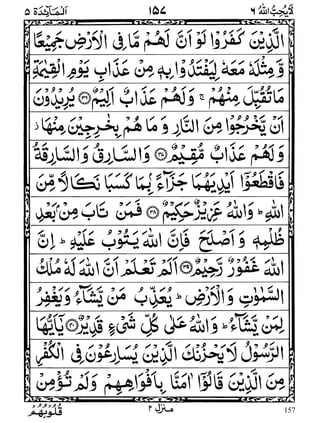 المآئدة ۵ ۱۵۷ لا یحب الله ۶
الَّذِيْنَ كَفَرُوْا لَوْ اَنَّ لَهُمْ مَّا فِى الْاَرْضِ جَمِيْعًا
وَّ مِثْلَهٗ مَعَهٗ لِيَفْتَدُوْا بِهٖ مِنْ عَذَابِ يَوْمِ الْقِيٰمَةِ
مَا تُقُبِّلَ مِنْهُمْ ۚ وَلَهُمْ عَذَابٌ اَلِيْمٌ ﴿۳۶﴾ يُرِيْدُوْنَ
اَنْ يَّخْرُجُوْا مِنَ النَّارِ وَ مَا هُمْ بِخٰرِجِيْنَ مِنْهَا ز
وَ لَهُمْ عَذَابٌ مُّقِيْمٌ ﴿۳۷﴾ وَالسَّارِقُ وَالسَّارِقَةُ
فَاقْطَعُوْٓا اَيْدِيَهُمَا جَزَآءًۢ بِمَا كَسَبَا نَكَالًا مِّنَ
اللهِ ؕ وَاللهُ عَزِيْزٌ حَكِيْمٌ ﴿۳۸﴾ فَمَنْ تَابَ مِنْۢ بَعْدِ
ظُلْمِهٖ وَ اَصْلَحَ فَاِنَّ اللهَ يَتُوْبُ عَلَيْهِ ؕ اِنَّ
اللهَ غَفُوْرٌ رَّحِيْمٌ ﴿۳۹﴾ اَلَمْ تَعْلَمْ اَنَّ اللهَ لَهٗ مُلْكُ
السَّمٰوٰتِ وَالْاَرْضِ ؕ يُعَذِّبُ مَنْ يَّشَآءُ وَيَغْفِرُ
لِمَنْ يَّشَآءُ ؕ وَاللهُ عَلٰى كُلِّ شَىْءٍ قَدِيْرٌ ﴿۴۰﴾ يٰٓاَيُّهَا
الرَّسُوْلُ لَا يَحْزُنْكَ الَّذِيْنَ يُسَارِعُوْنَ فِى الْكُفْرِ
مِنَ الَّذِيْنَ قَالُوْٓا اٰمَنَّا بِاَفْوَاهِهِمْ وَلَمْ تُؤْمِنْ
قُلُوْبُهُمْ منزل ۲ 157